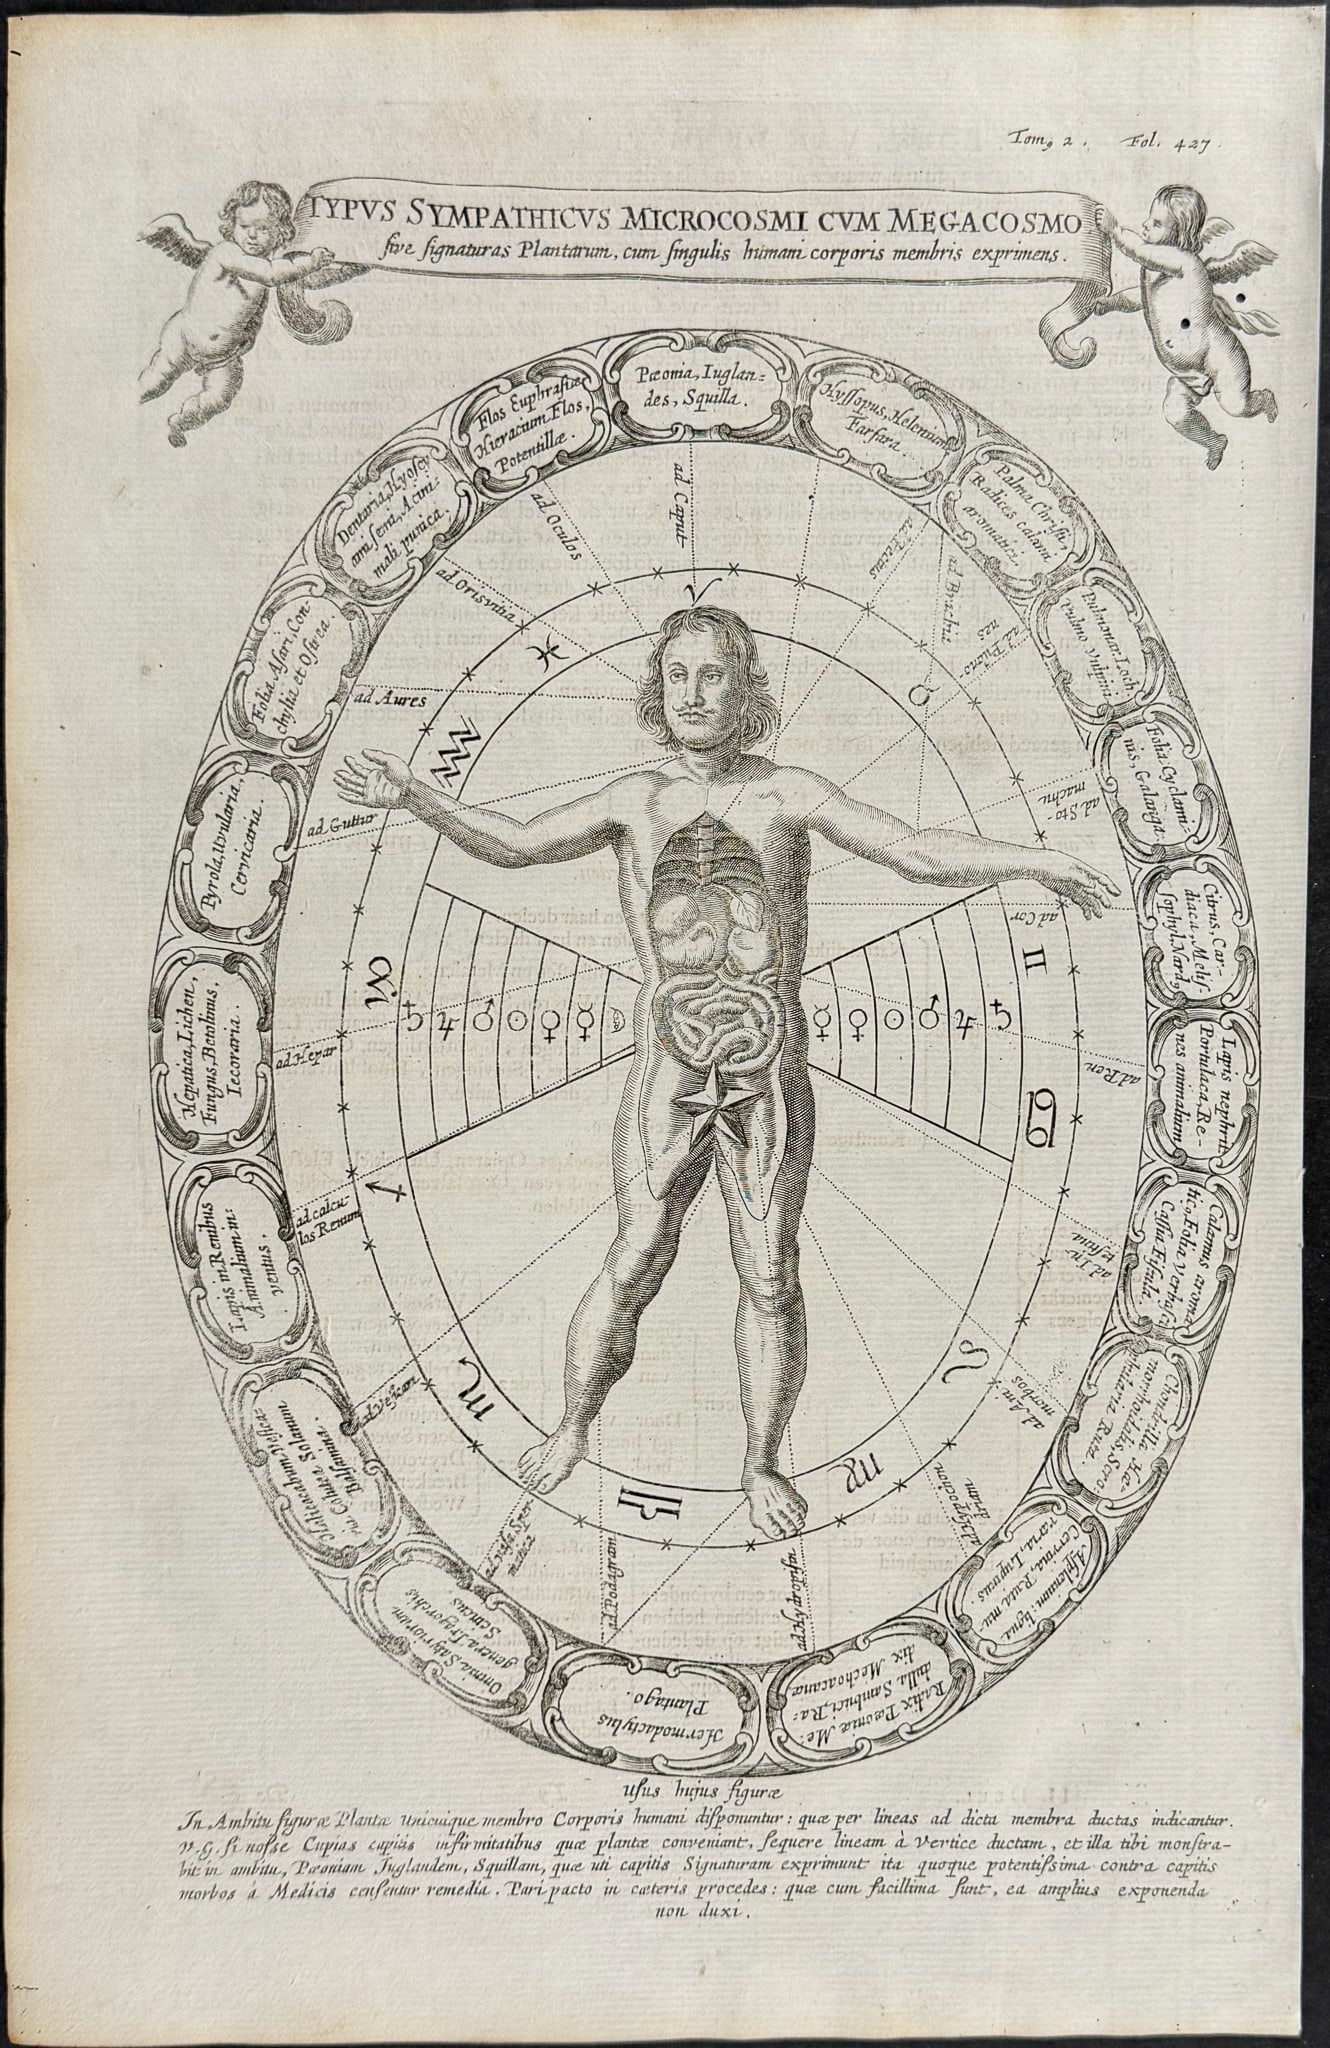 Tom, 2. Fol. 427.
TYPVS SYMPATHICVS MICROCOSMI CVM MEGACOSMO
sive signaturas Plantarum, cum singulis humani corporis membris exprimens.
Pæonia, Iuglan=
des, Squilla.
Hyssopus, Helenium
Farfara.
Palma Christi,
Radices calami
aromatici,
Pulmonar, Loch
pulmo vulpini
Folia Cyclami-
nis, Galanga.
Citrus, Car-
diaca, Melis
sophyl, Nard,
Lapis nephrit
Portulaca, Re-
nes animalium
Calamus aroma
tic, Folia Verbasci
Cassia Fistula.
Chondrilla Hæ-
morrhoidalis, Scro-
phularia Ruta.
Asplenium, ligua
Cervina, Ruta mu-
raria, Lupinus.
Radix Pæoniæ Me-
dulla Sambuci, Ra-
dix Mechoacanæ
Hermodactylus
Plantago.
Omnia Satyriorum
genera, Tragorchis
Semius
Halicacabum, Vesica-
ria, Colutea, Solanum
Balsamina.
Lapis in Renibus
Animalium in=
ventus.
Hepatica, Lichen,
Fungus, Betolinus,
Iecoraria.
Pyrola, Uvularia,
Cervicaria.
Folia Asari, Con-
chylia et Ostrea
Dentaria, Hyoscy
ami semi, Acini
mali punica.
Flos Euphrasiæ
Hieracium Flos,
Potentillæ.
ad Caput
ad Oculos
ad Oris vitia
ad Aures
ad Guttur
ad Hepar
ad calcu
los Renum
ad Vesicam
ad Vasa Sper
matica
ad Podagram
ad Hydropisin
ad Hypochon
drium
ad
morbos
ad In-
testina
ad Ren
ad Cor
ad Sto-
machu
ad Pulmo
nes
ad Brachii
ad Pectus
Usus hujus figuræ
In Ambitu figuræ Plantæ unicuique membro Corporis humani disponuntur: quæ per lineas ad dicta membra ductas indicantur.
v.g. si nosse Cupias capitis infirmitatibus quæ plantæ conveniant, sequere lineam à vertice ductam, et illa tibi monstra-
bit in ambitu, Pæoniam Juglandem, Squillam, quæ uti capitis Signaturam exprimunt ita quoque potentissima contra capitis
morbos á Medicis censentur remedia. Pari pacto in cæteris procedes: quæ cum facillima sunt, ea amplius exponenda
non duxi.